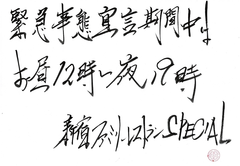 緊急事態宣言期間中は
お昼12時〜夜19時
新宿ファミリーレストランSPECIAL